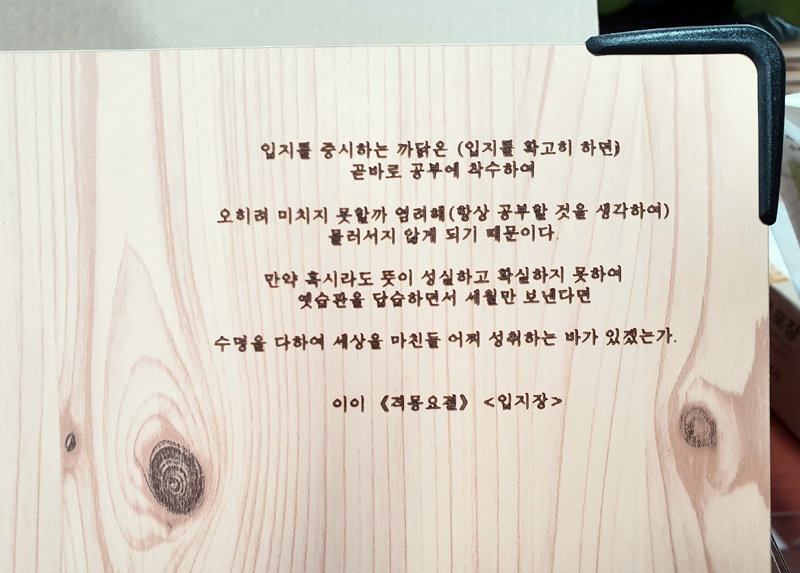 입지를 중시하는 까닭은 (입지를 확고히 하면)
곧바로 공부에 착수하여
오히려 미치지 못할까 염려해(항상 공부할 것을 생각하여)
물러서지 않게 되기 때문이다.
만약 혹시라도 뜻이 성실하고 확실하지 못하여
옛습관을 답습하면서 세월만 보낸다면
수명을 다하여 세상을 마친들 어찌 성취하는 바가 있겠는가.
이이 《격몽요결》 <입지장>